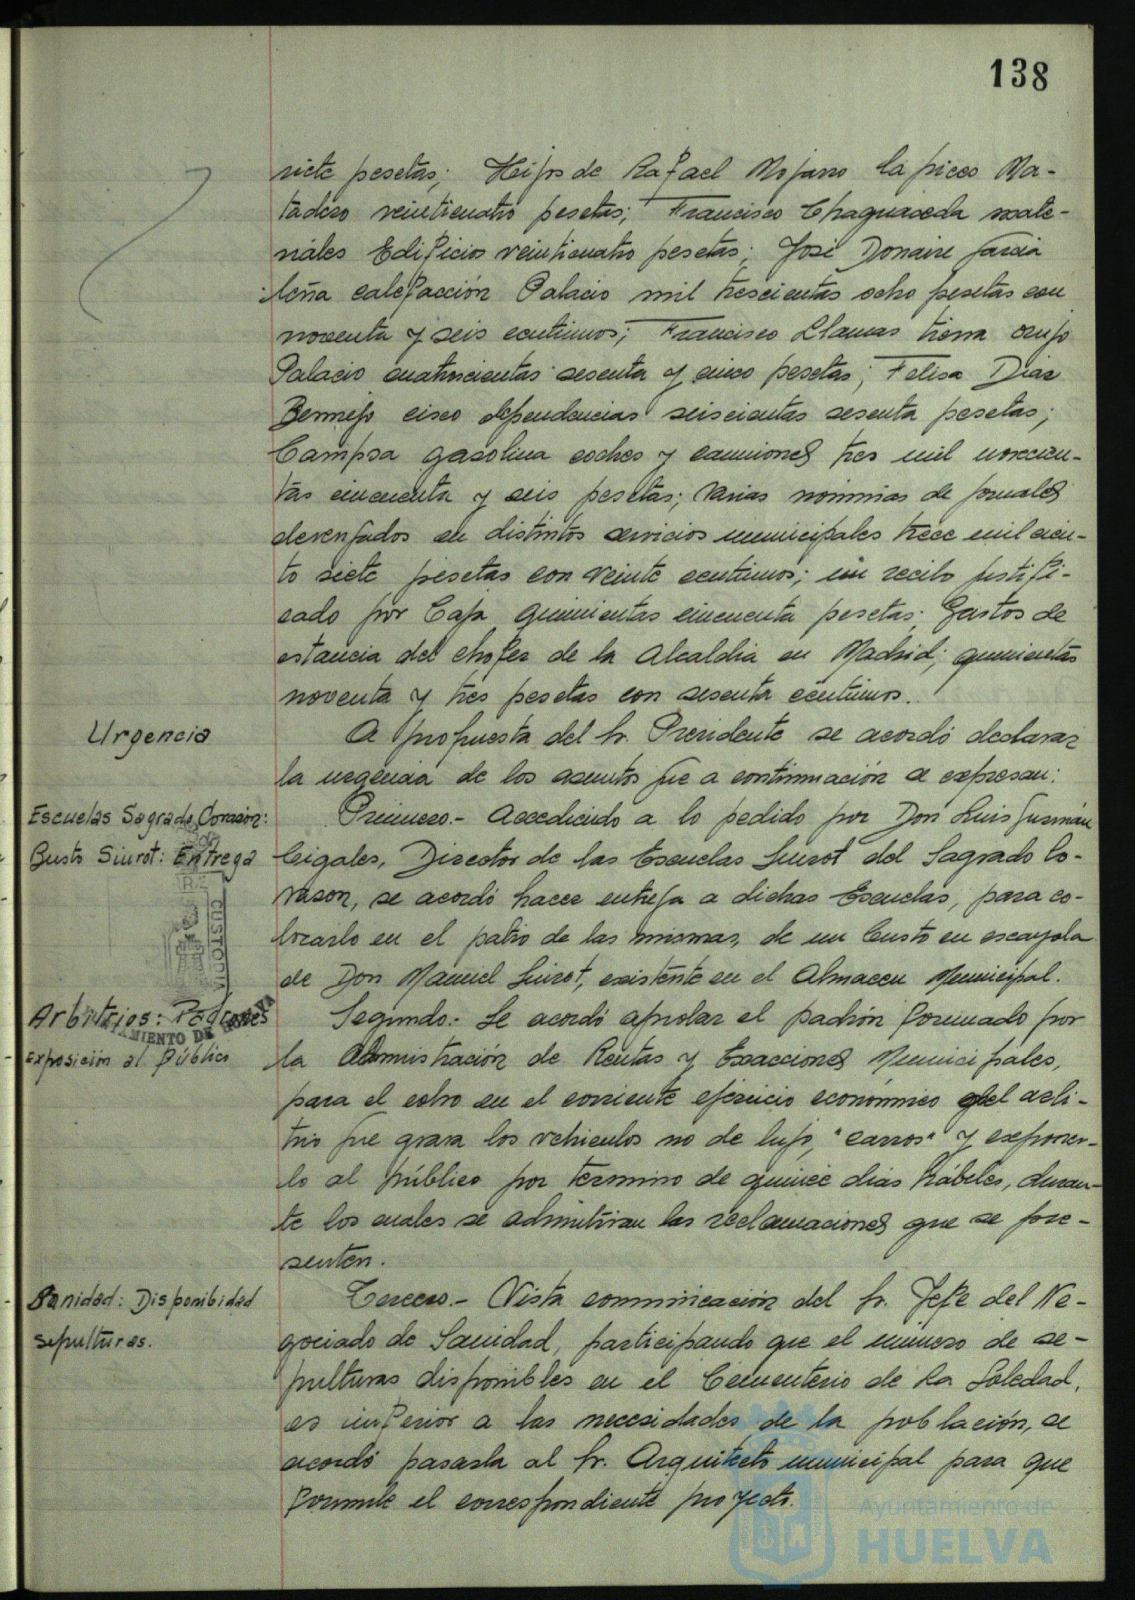 138
siete pesetas; Hijos de Rafael Mojarro lapices Ma-
tadero veinticuatro pesetas; Francisco Chaguaceda mate-
riales Edificios veinticuatro pesetas; José Donaire Garcia
leña calefacción Palacio mil trescientas ocho pesetas con
noventa y seis centimos; Francisco Llamas tierra
Palacio cuatrocientas sesenta y cinco pesetas; Felisa Diaz
Bermejo cisco dependencias seiscientas sesenta pesetas;
Campsa gasolina coches y camiones tres mil novecien-
tas cincuenta y seis pesetas; varias nóminas de jornales
devengados en distintos servicios municipales trece mil cien-
to siete pesetas con veinte centimos; un recibo justifi-
cado por Caja quinientas cincuenta pesetas; Gastos de
estancia del chofer de la Alcaldia en Madrid; quinientas
noventa y tres pesetas con sesenta centimos.
Urgencia
A propuesta del Sr. Presidente se acordó declarar
la urgencia de los asuntos que a continuación se expresan:
Escuelas Sagrado Corazón:
Busto Siurot: Entrega
Primero.- Accediendo a lo pedido por Don Luis Guzmán
Cigales, Director de las Escuelas Siurot del Sagrado Co-
razon, se acordó hacer entrega a dichas Escuelas, para co-
locarlo en el patio de las mismas, de un busto en escayola
de Don Manuel Siurot, existente en el Almacen Municipal.
CUSTODIA
AMIENTO DE HUELVA
Arbitrios: Padrones
Exposición al Público
Segundo.- Se acordó aprobar el padrón formado por
la Admistración de Rentas y Exacciones Municipales,
para el cobro en el corriente ejercicio económico del arbi-
trio que grava los vehiculos no de lujo, "carros" y exponer-
lo al público por termino de quince dias hábiles, duran-
te los cuales se admitiran las reclamaciones que se pre-
senten.
Sanidad: Disponibidad
sepulturas.
Tercero.- Vista comunicación del Sr. Jefe del Ne-
gociado de Sanidad, participando que el número de se-
pulturas disponibles en el Cementerio de La Soledad,
es inferior a las necesidades de la población, se
acordó pasarla al Sr. Arquitecto municipal para que
formule el correspondiente proyecto.
Ayuntamiento de
HUELVA